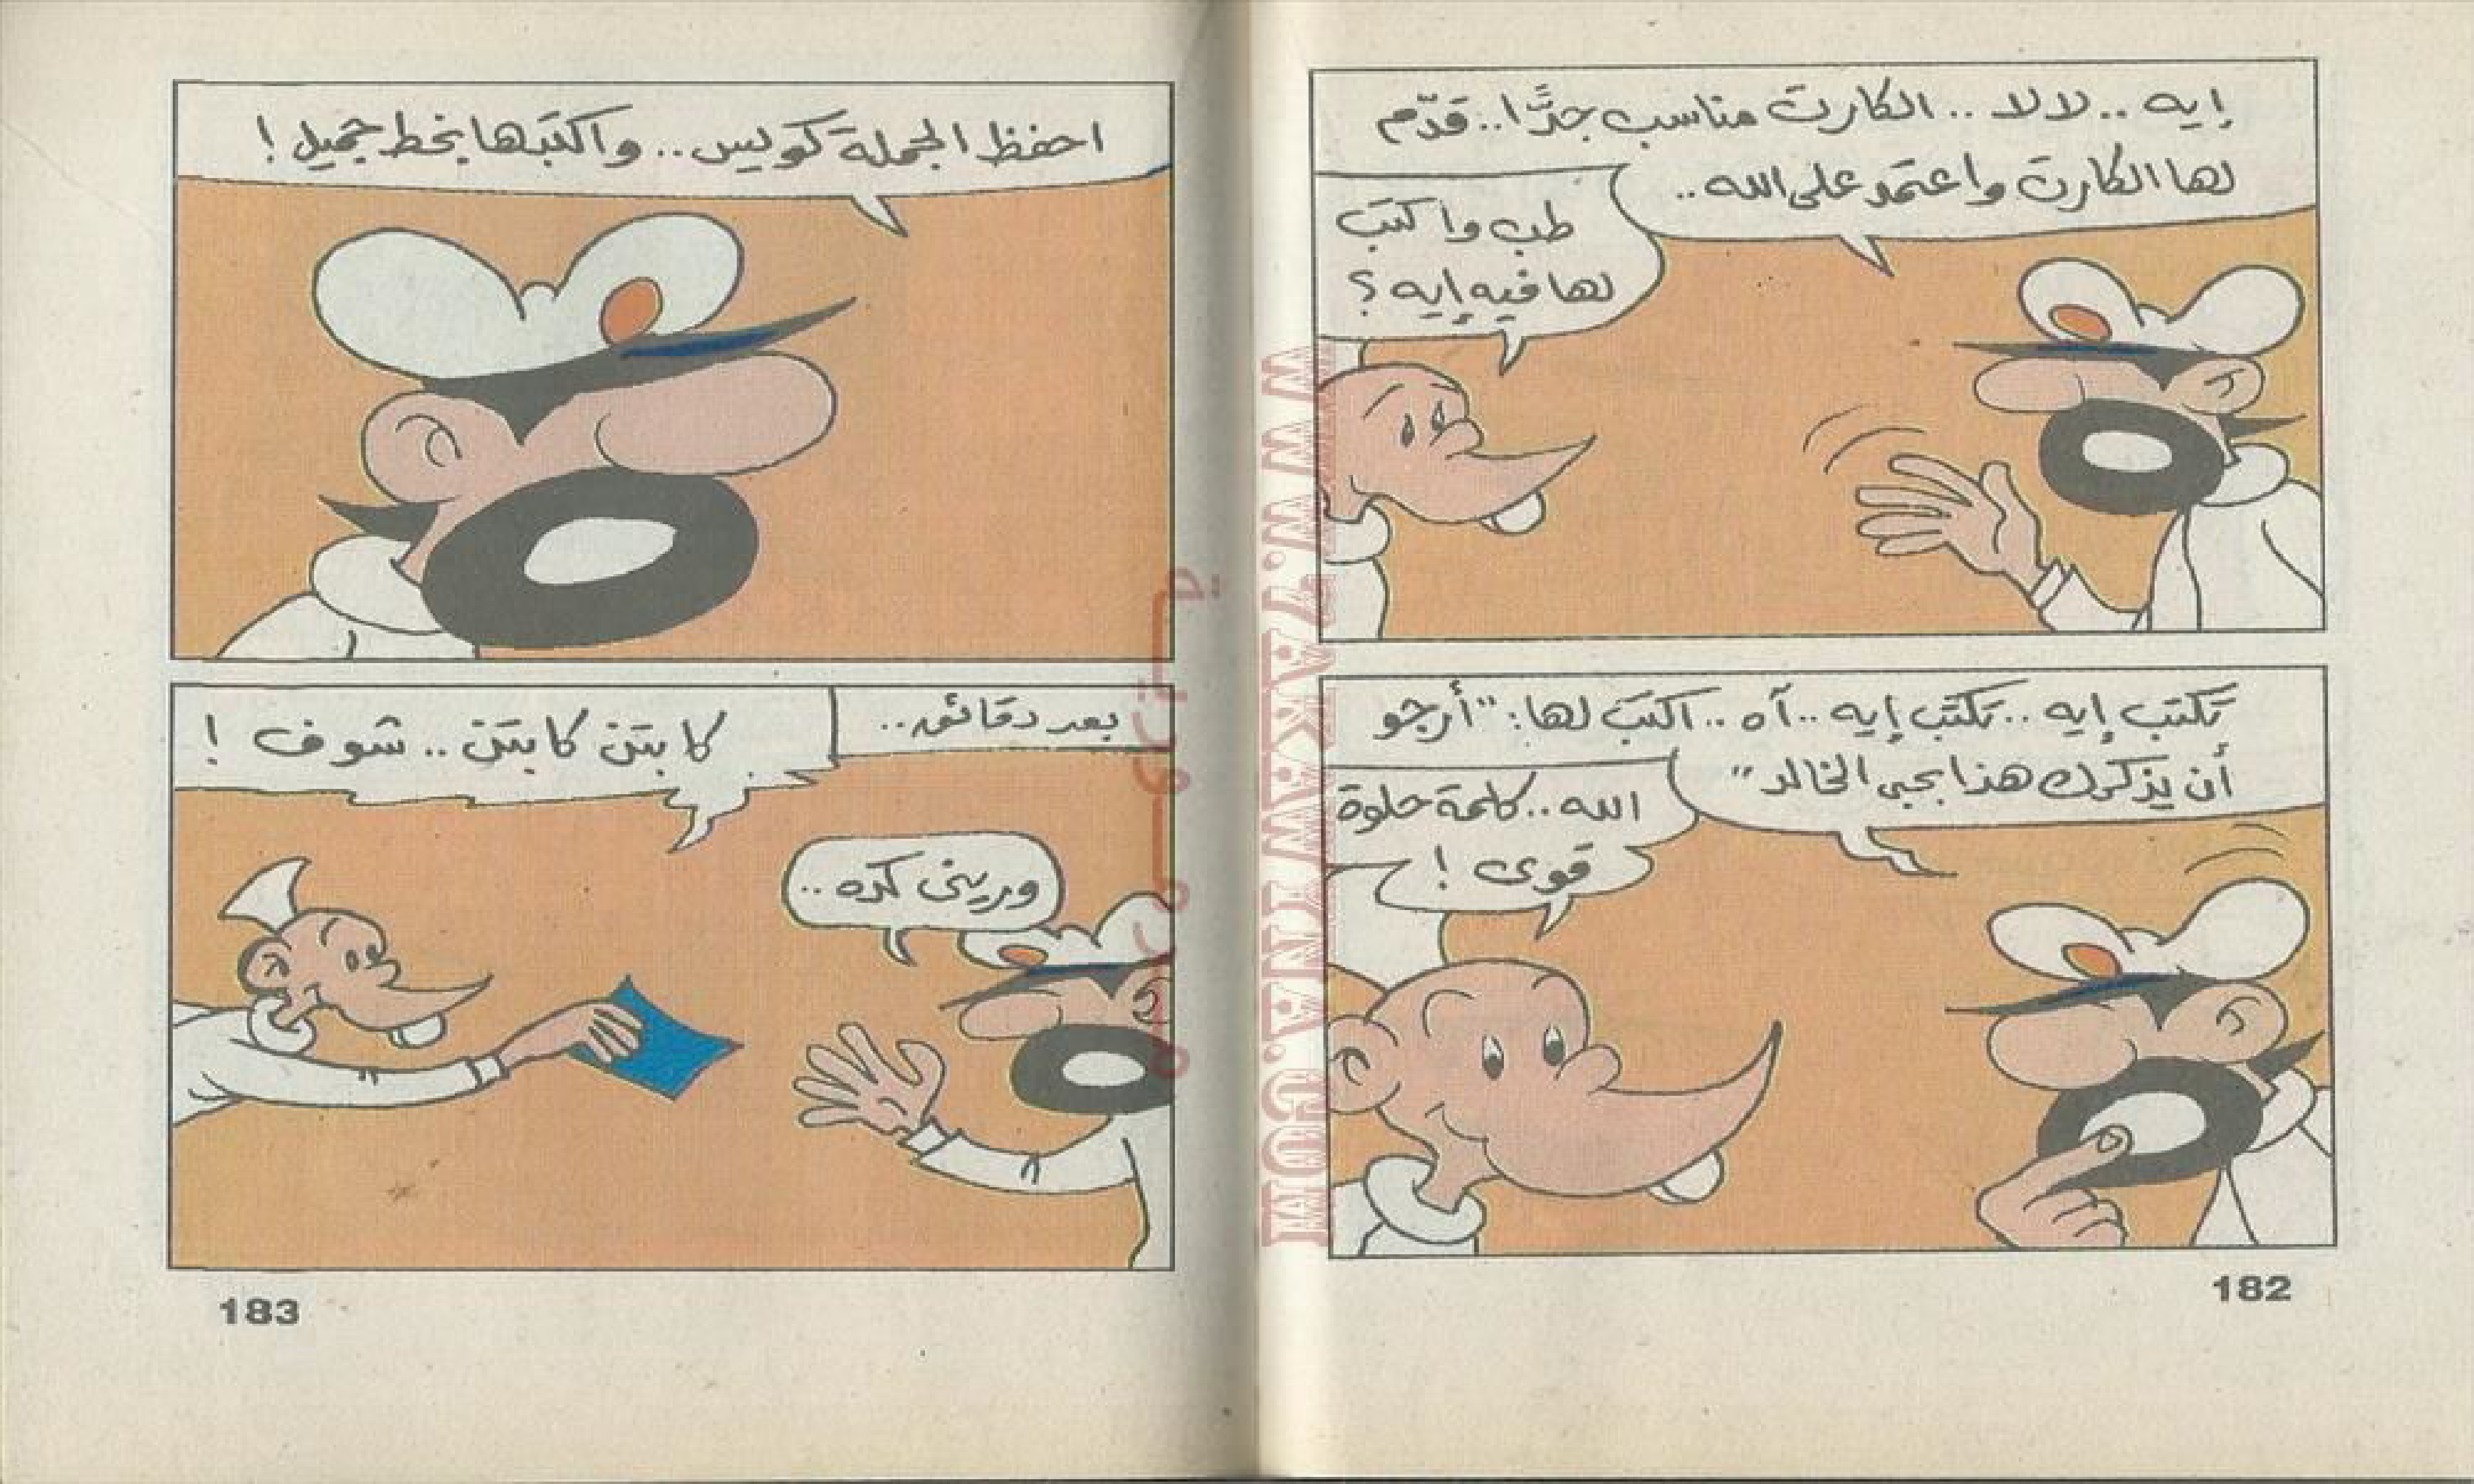 إيه .. لا لا .. الكارت مناسب جدًّا .. قدّم
لها الكارت واعتمد على الله ..
طب واكتب
لها فيه إيه ؟
تكتب إيه .. تكتب إيه .. آه .. اكتب لها : "أرجو
أن يذكرك هذا بحبى الخالد"
الله .. كلمة حلوة
قوى !
182
احفظ الجملة كويس .. واكتبها بخط جميل !
بعد دقائق ..
كابتن كابتن .. شوف !
ورينى كده ..
183